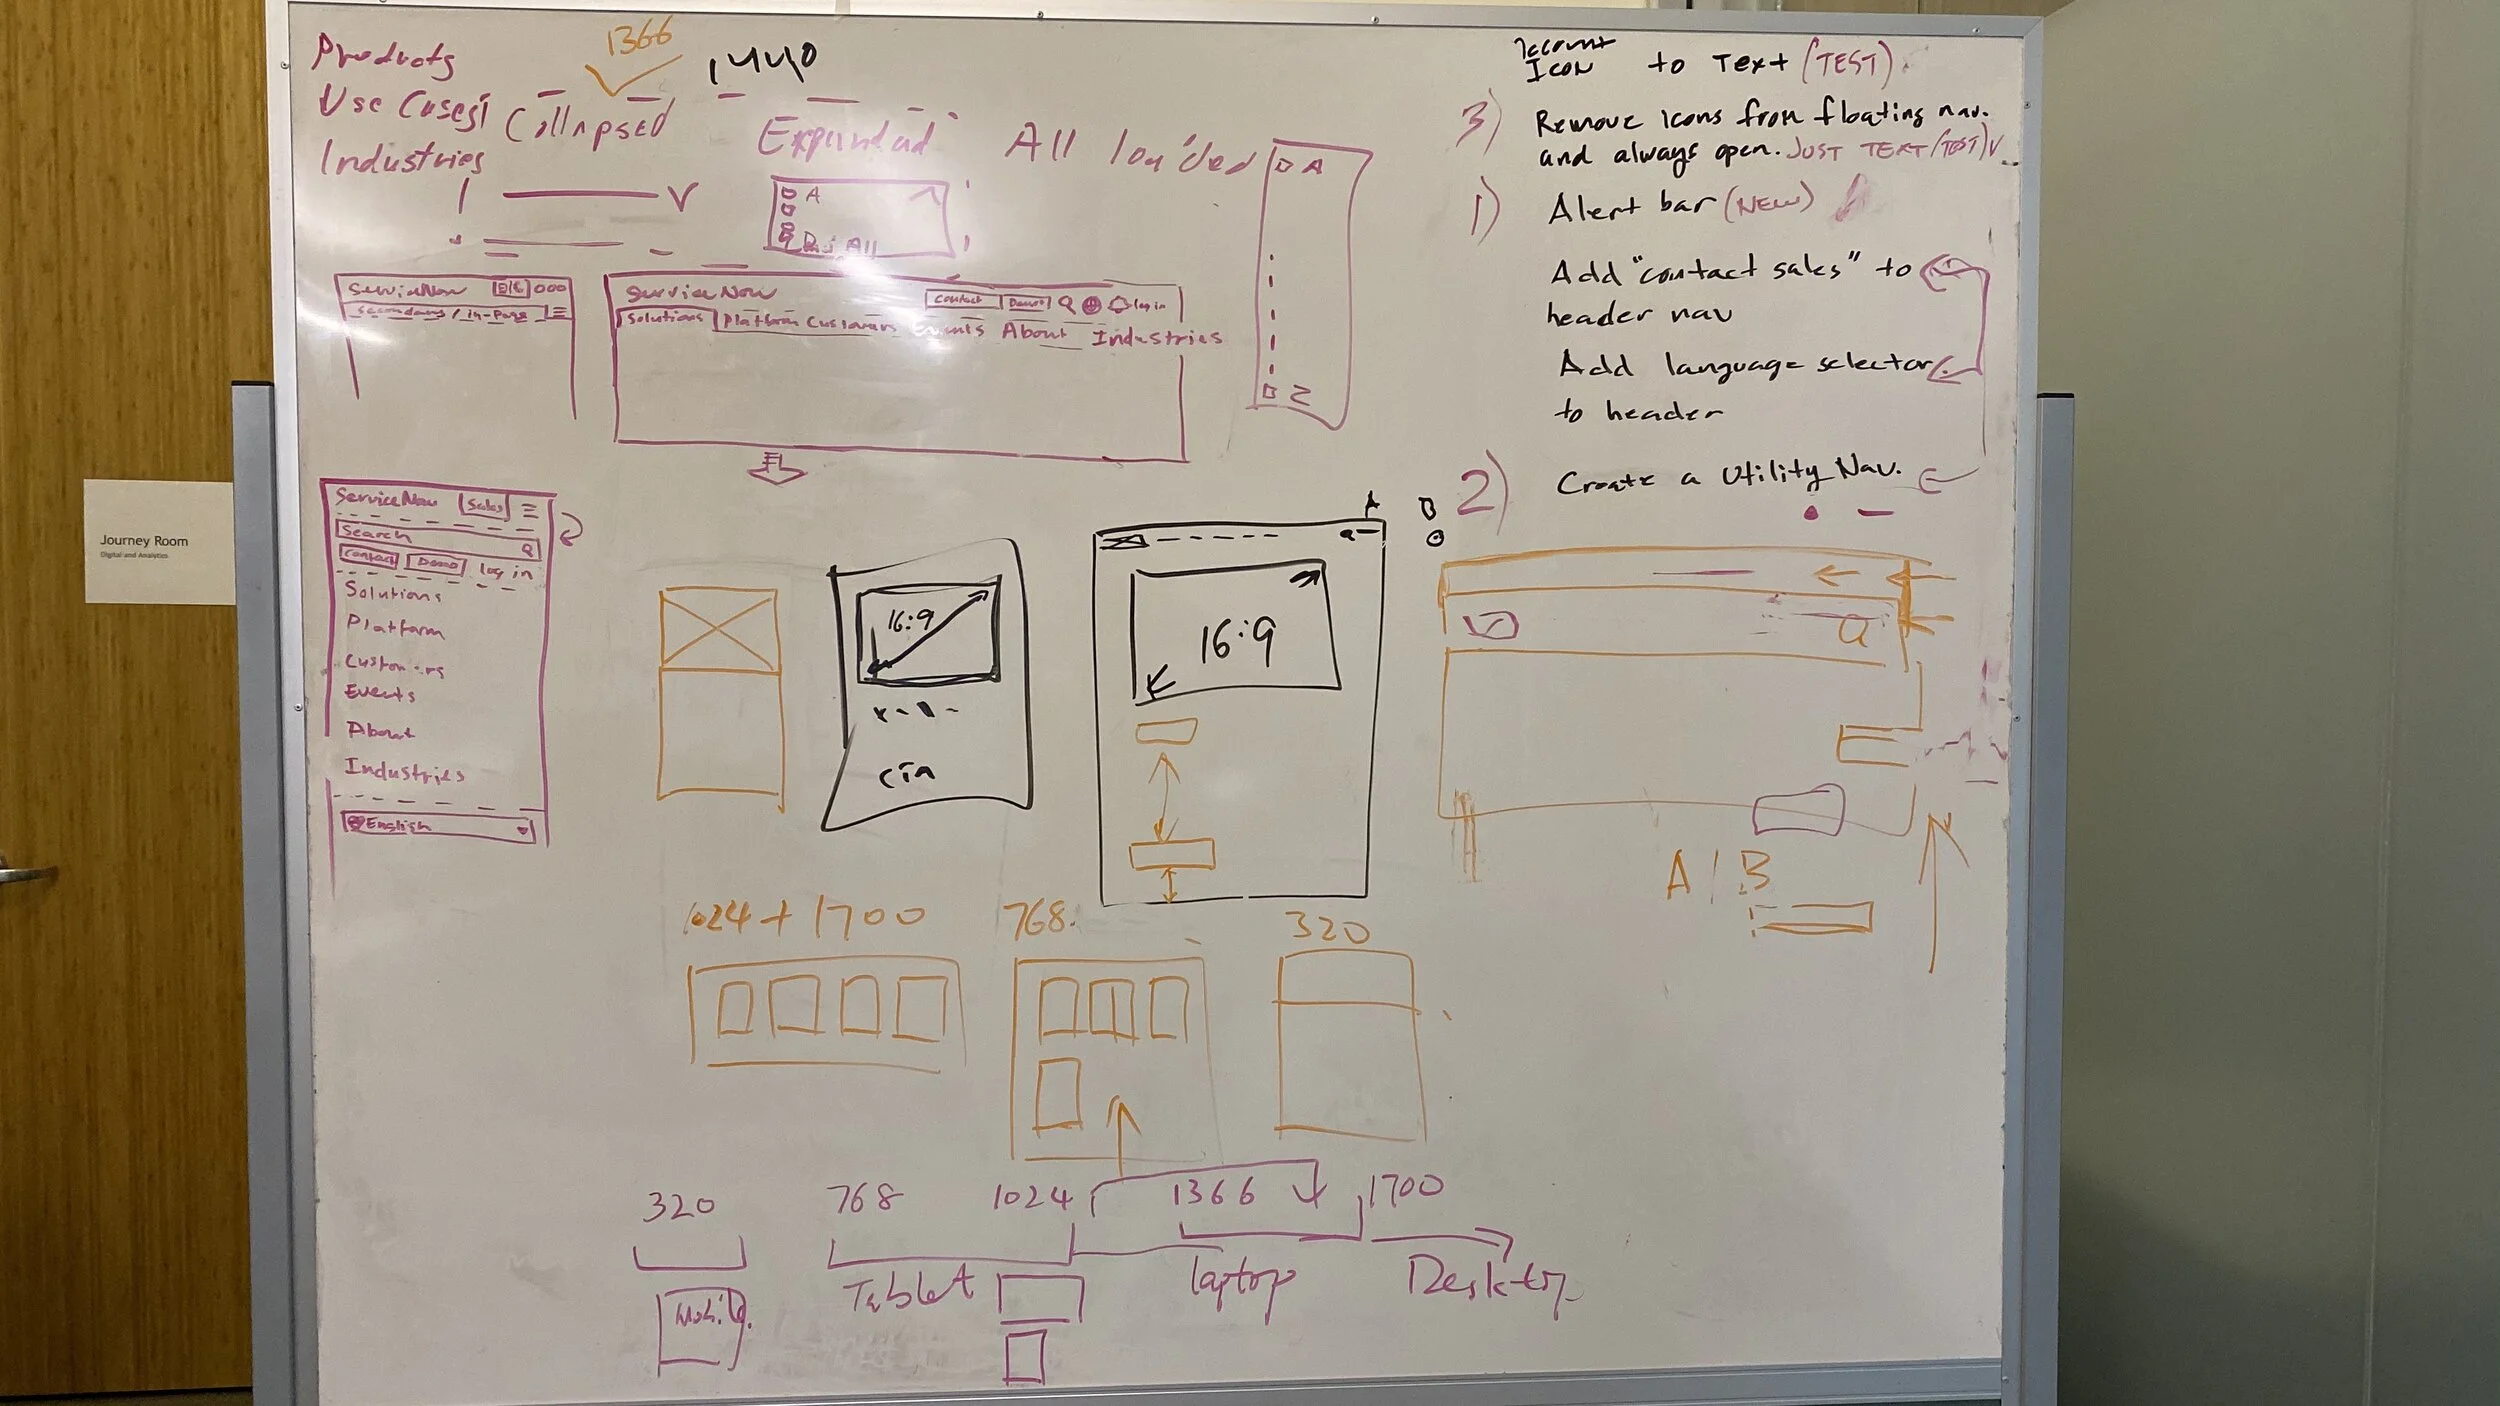 Products
Use Cases
Industries
1366
1440
Collapsed
Expanded
All loaded
A
A
Z
ServiceNow
secondary / in-page
ServiceNow
Contact
Demo
log in
Solutions
Platform
Customers
Events
About
Industries
Account
Icon to Text (TEST)
3) Remove icons from floating nav.
and always open. JUST TEXT (TEST)
1) Alert bar (NEW)
Add "contact sales" to
header nav
Add language selector
to header
2) Create a Utility Nav.
ServiceNow
Sales
Search
Contact
Demo
log in
Solutions
Platform
Customers
Events
About
Industries
English
16:9
16:9
A
A | B
1024 + 1700
768
320
320
768
1024
1366
1700
Mobile
Tablet
laptop
Desktop
Journey Room
Digital and Analytics